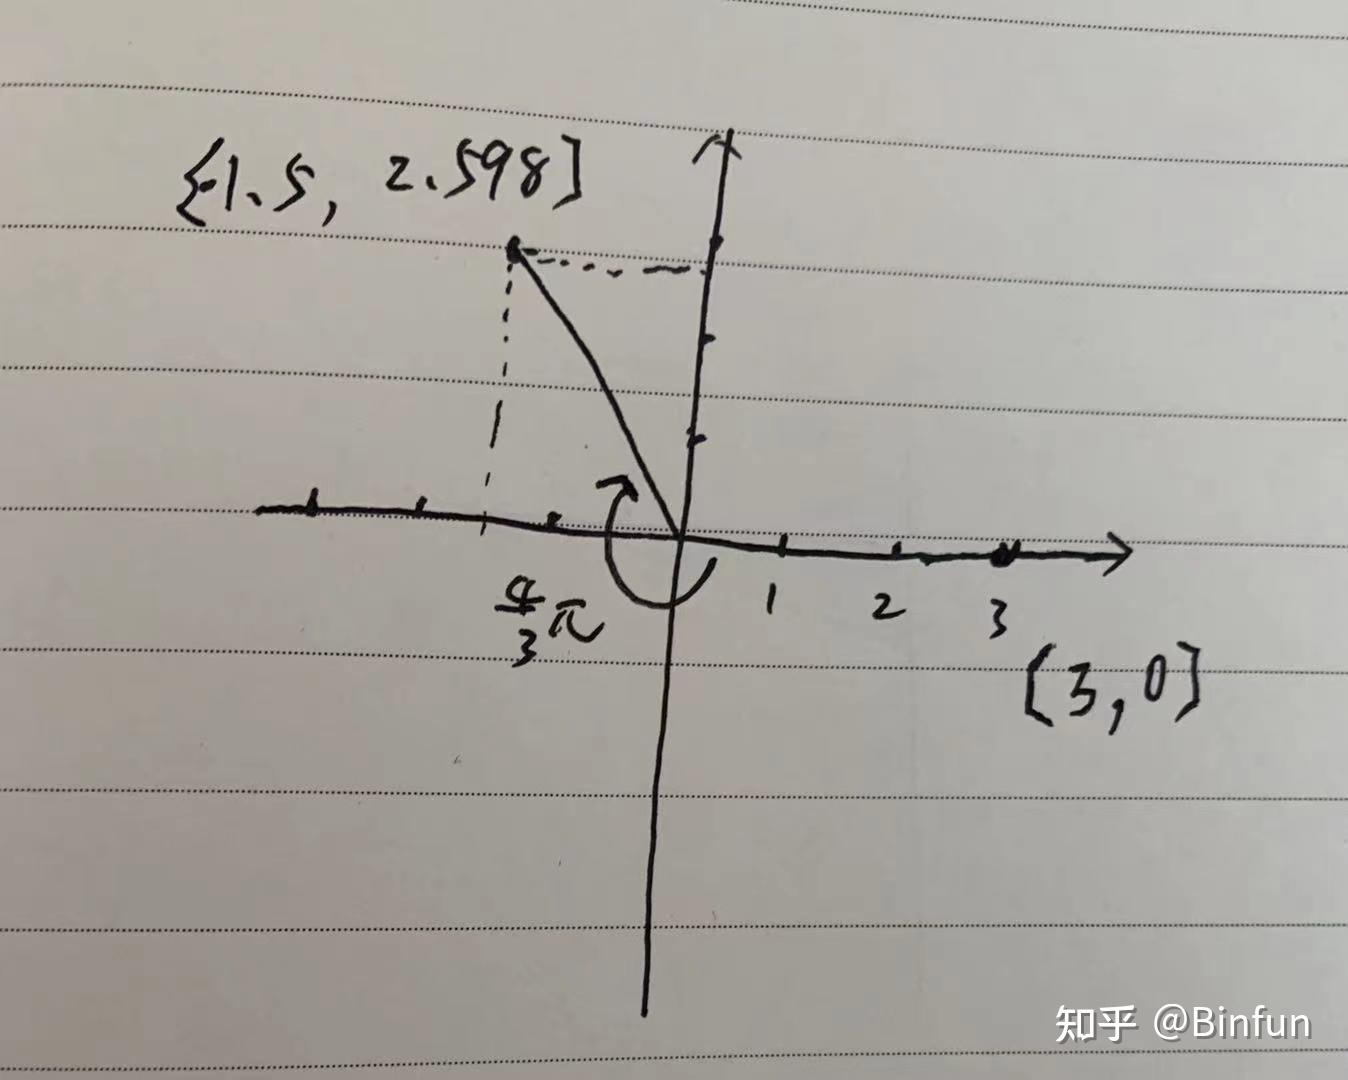 [-1.5, 2.598]
4/3 π
1 2 3
[3,0]
知乎 @Binfun